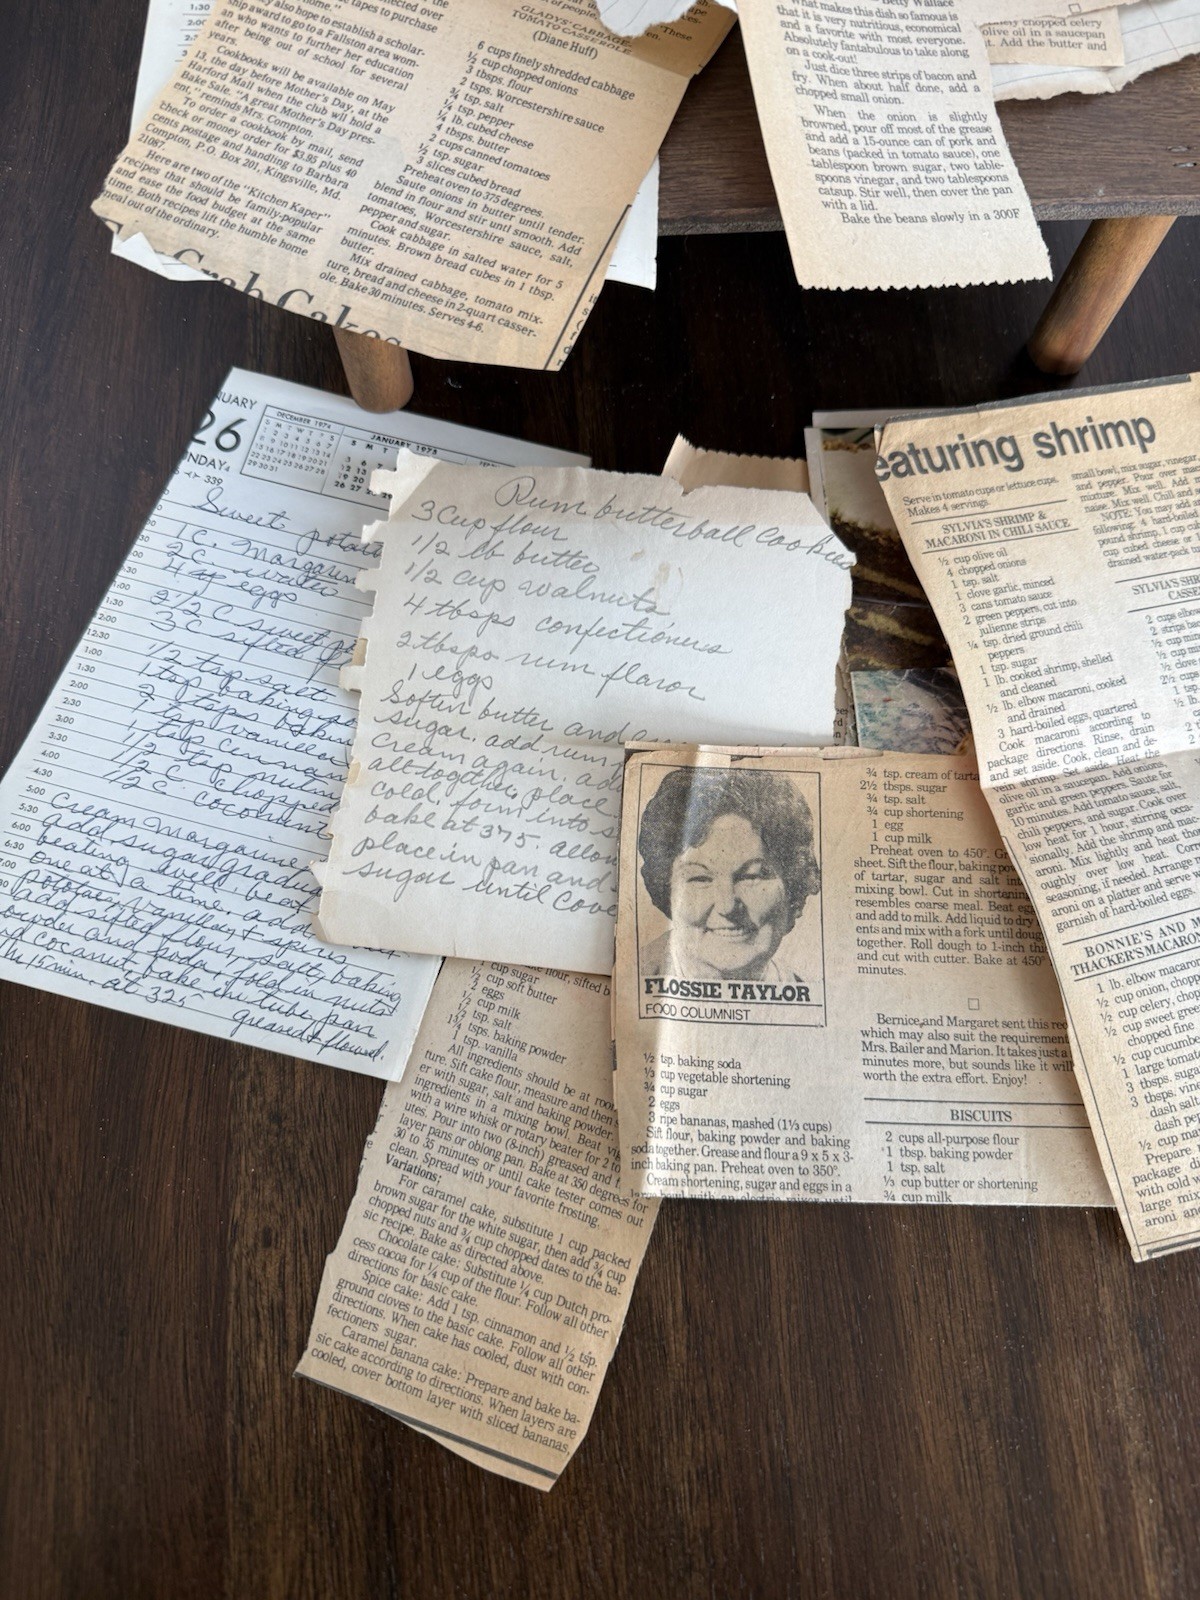 1:30
2:00
tapes to purchase
also hope to establish a scholar-
ship award to go to a Fallston area wom-
an who wants to further her education
after being out of school for several
years.
Cookbooks will be available on May
13, the day before Mother's Day, at the
Harford Mall when the club will hold a
Bake Sale. "A great Mother's Day pres-
ent," reminds Mrs. Compton.
To order a cookbook by mail, send
check or money order for $3.95 plus 40
cents postage and handling to Barbara
Compton, P.O. Box 201, Kingsville, Md.
21087.
Here are two of the "Kitchen Kaper"
recipes that should be family-popular
and ease the food budget at the same
time. Both recipes lift the humble home
meal out of the ordinary.
Crab Cakes
GLADYS' CABBAGE-
TOMATO CASSEROLE
(Diane Huff)
6 cups finely shredded cabbage
½ cup chopped onions
3 tbsps. flour
2 tsps. Worcestershire sauce
¾ tsp. salt
¼ tsp. pepper
¼ lb. cubed cheese
4 tbsps. butter
2 cups canned tomatoes
½ tsp. sugar
3 slices cubed bread
Preheat oven to 375 degrees.
Saute onions in butter until tender.
blend in flour and stir until smooth. Add
tomatoes, Worcestershire sauce, salt,
pepper and sugar.
Cook cabbage in salted water for 5
minutes. Brown bread cubes in 1 tbsp.
butter.
Mix drained cabbage, tomato mix-
ture, bread and cheese in 2-quart casser-
ole. Bake 30 minutes. Serves 4-6.
Betty Wallace
What makes this dish so famous is
that it is very nutritious, economical
and a favorite with most everyone.
Absolutely fantabulous to take along
on a cook-out!
Just dice three strips of bacon and
fry. When about half done, add a
chopped small onion.
When the onion is slightly
browned, pour off most of the grease
and add a 15-ounce can of pork and
beans (packed in tomato sauce), one
tablespoon brown sugar, two table-
spoons vinegar, and two tablespoons
catsup. Stir well, then cover the pan
with a lid.
Bake the beans slowly in a 300F
chopped celery
olive oil in a saucepan
it. Add the butter and
NUARY
26
ONDAY
339
DECEMBER 1974
JANUARY 1975
Sweet potato
1 C. Margarin
2 C.
4 eggs
2½ C sweet
3 C sifted
½ tsp salt
1 tsp baking
2 tsps
1 tsp vanilla
1 tsp cinnamon
½ tsp nutm
½ C chopped
½ C. coconut
Cream Margarine
add sugar gradua
beating well. beat
one at a time. add
potatoes, vanilla & spices
add sifted flour, salt, baking
powder and soda, fold in nuts
coconut bake in tube pan
15 min. at 325
greased & floured.
12:30
1:00
1:30
2:00
2:30
3:00
3:30
4:00
4:30
5:00
5:30
6:00
6:30
7:00
Rum butterball Cookies
3 Cup flour
1/2 lb butter
1/2 cup walnuts
4 tbsps confectioners
2 tbsps rum flavor
1 eggs
Soften butter and
sugar, add rum
cream again. add
all together, place
cold, form into
bake at 375. allow
place in pan and
sugar until cove
1 cup sugar
½ cup soft butter
2 eggs
½ cup milk
½ tsp. salt
1¾ tsps. baking powder
1 tsp. vanilla
All ingredients should be at room
ture. Sift cake flour, measure and then
er with sugar, salt and baking powder.
ingredients in a mixing bowl. Beat
with a wire whisk or rotary beater for 2 to
utes. Pour into two (8-inch) greased and
layer pans or oblong pan. Bake at 350 degrees for
30 to 35 minutes or until cake tester comes out
clean. Spread with your favorite frosting.
Variations:
For caramel cake, substitute 1 cup packed
brown sugar for the white sugar, then add ¾ cup
chopped nuts and ¾ cup chopped dates to the ba-
sic recipe. Bake as directed above.
Chocolate cake: Substitute ¼ cup Dutch pro-
cess cocoa for ¼ cup of the flour. Follow all other
directions for basic cake.
Spice cake: Add 1 tsp. cinnamon and ½ tsp.
ground cloves to the basic cake. Follow all other
directions. When cake has cooled, dust with con-
fectioners sugar.
Caramel banana cake: Prepare and bake ba-
sic cake according to directions. When layers are
cooled, cover bottom layer with sliced bananas,
FLOSSIE TAYLOR
FOOD COLUMNIST
½ tsp. baking soda
⅓ cup vegetable shortening
¾ cup sugar
2 eggs
3 ripe bananas, mashed (1⅓ cups)
Sift flour, baking powder and baking
soda together. Grease and flour a 9 x 5 x 3-
inch baking pan. Preheat oven to 350°.
Cream shortening, sugar and eggs in a
large bowl with an electric mixer until
¾ tsp. cream of tarta
2½ tbsps. sugar
¾ tsp. salt
¾ cup shortening
1 egg
1 cup milk
Preheat oven to 450°. Gr
sheet. Sift the flour, baking pow
of tartar, sugar and salt int
mixing bowl. Cut in shortening
resembles coarse meal. Beat eg
and add to milk. Add liquid to dry
ents and mix with a fork until doug
together. Roll dough to 1-inch th
and cut with cutter. Bake at 450°
minutes.
Bernice and Margaret sent this rec
which may also suit the requirement
Mrs. Bailer and Marion. It takes just a
minutes more, but sounds like it will
worth the extra effort. Enjoy!
BISCUITS
2 cups all-purpose flour
1 tbsp. baking powder
1 tsp. salt
⅓ cup butter or shortening
¾ cup milk
eaturing shrimp
Serve in tomato cups or lettuce cups.
Makes 4 servings.
SYLVIA'S SHRIMP &
MACARONI IN CHILI SAUCE
½ cup olive oil
4 chopped onions
1 tsp. salt
1 clove garlic, minced
3 cans tomato sauce
2 green peppers, cut into
julienne strips
¼ tsp. dried ground chili
peppers
1 tsp. sugar
1 lb. cooked shrimp, shelled
and cleaned
½ lb. elbow macaroni, cooked
and drained
3 hard-boiled eggs, quartered
Cook macaroni according to
package directions. Rinse, drain
and set aside. Cook, clean and de-
vein shrimp. Set aside. Heat the
olive oil in a saucepan. Add onions,
garlic and green peppers. Saute for
10 minutes. Add tomato sauce, salt,
chili peppers, and sugar. Cook over
low heat for 1 hour, stirring occa-
sionally. Add the shrimp and mac-
aroni. Mix lightly and heat
oughly over low heat. Corre
seasoning, if needed. Arrange
aroni on a platter and serve w
garnish of hard-boiled eggs.
BONNIE'S AND
THACKER'S MACARON
1 lb. elbow macaron
½ cup onion, chopp
½ cup celery, chop
½ cup sweet gree
chopped fine
½ cup cucumbe
1 large tomat
3 tbsps. suga
3 tbsps. vin
dash salt
dash pe
½ cup ma
Prepare
package d
with cold w
large mix
aroni and
small bowl, mix sugar, vinegar,
and pepper. Pour over
mixture. Mix well. Add m
naise. Mix well. Chill and s
NOTE: You may add
following: 4 hard-boiled
pound shrimp, 1 cup
cup cubed cheese or
drained water-pack
SYLVIA'S SHR
CASSE
2 cups elbo
2 strips ba
½ cup mi
½ clove
2½ cups